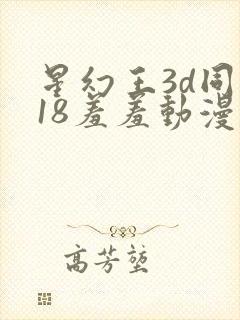 星幻王3d同
18羞羞動漫
高芳堃